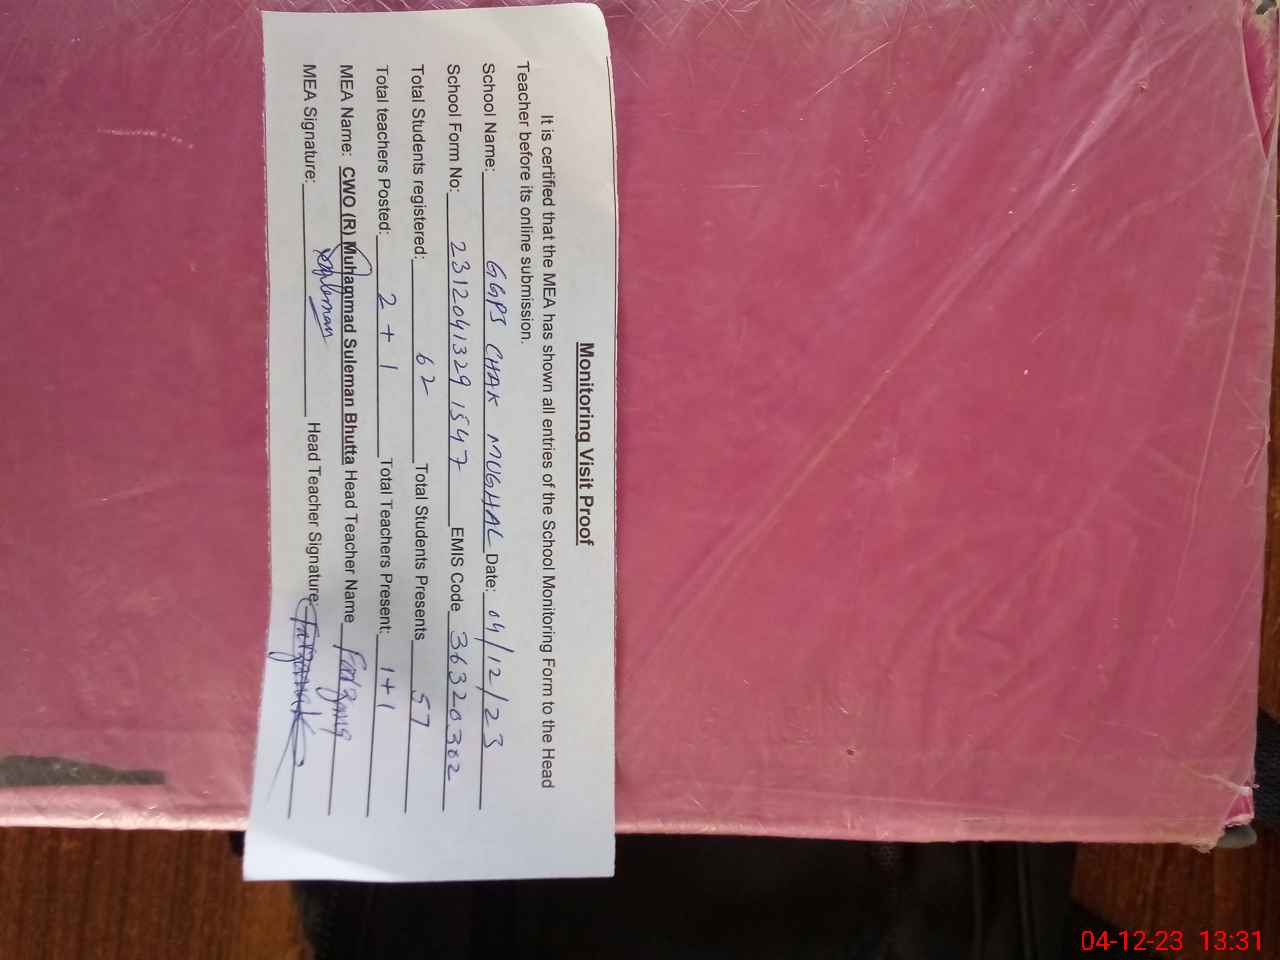 Monitoring Visit Proof
It is certified that the MEA has shown all entries of the School Monitoring Form to the Head
Teacher before its online submission.
School Name: GGPS CHAK MUGHAL Date: 04/12/23
School Form No: 2312041329 1547 EMIS Code 36320302
Total Students registered: 62 Total Students Presents 57
Total teachers Posted: 2 + 1 Total Teachers Present: 1+1
MEA Name: CWO (R) Muhammad Suleman Bhutta Head Teacher Name Farzana
MEA Signature: Suleman Head Teacher Signature:
04-12-23 13:31